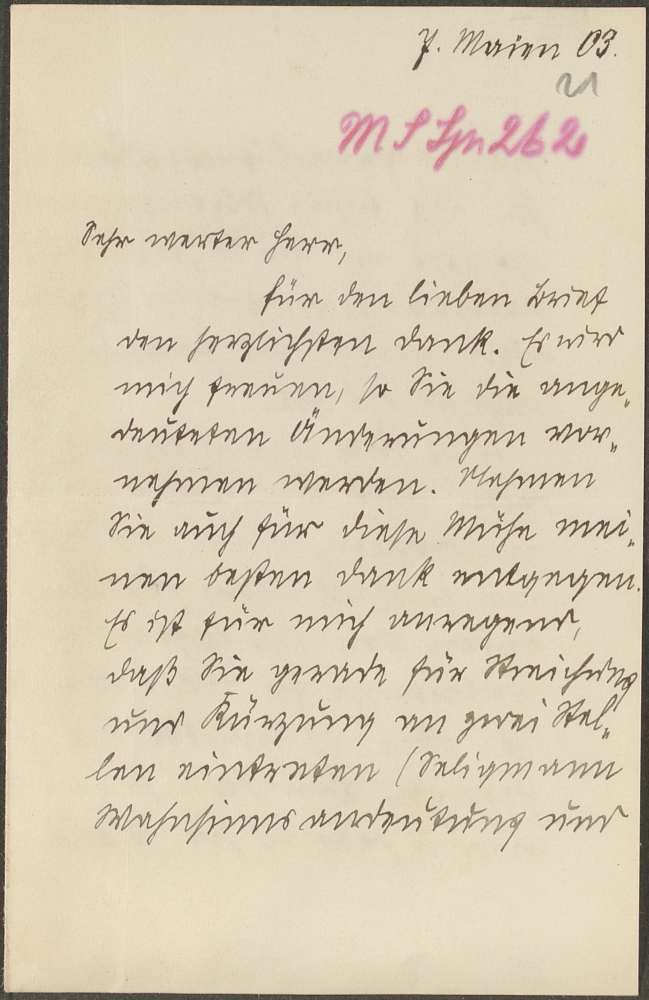 7. Maien 03.
21
M S Spr 262
Sehr werter Herr,
für den lieben Brief
den herzlichsten Dank. Es wird
mich freuen, so Sie die ange-
deuteten Änderungen vor-
nehmen werden. Nehmen
Sie auch für diese Mühe mei-
nen besten Dank entgegen.
Es ist für mich anregend,
daß Sie gerade für Streichung
und Kürzung an zwei Stel-
len eintreten (Seligmann
Wahnsinnsandeutung und